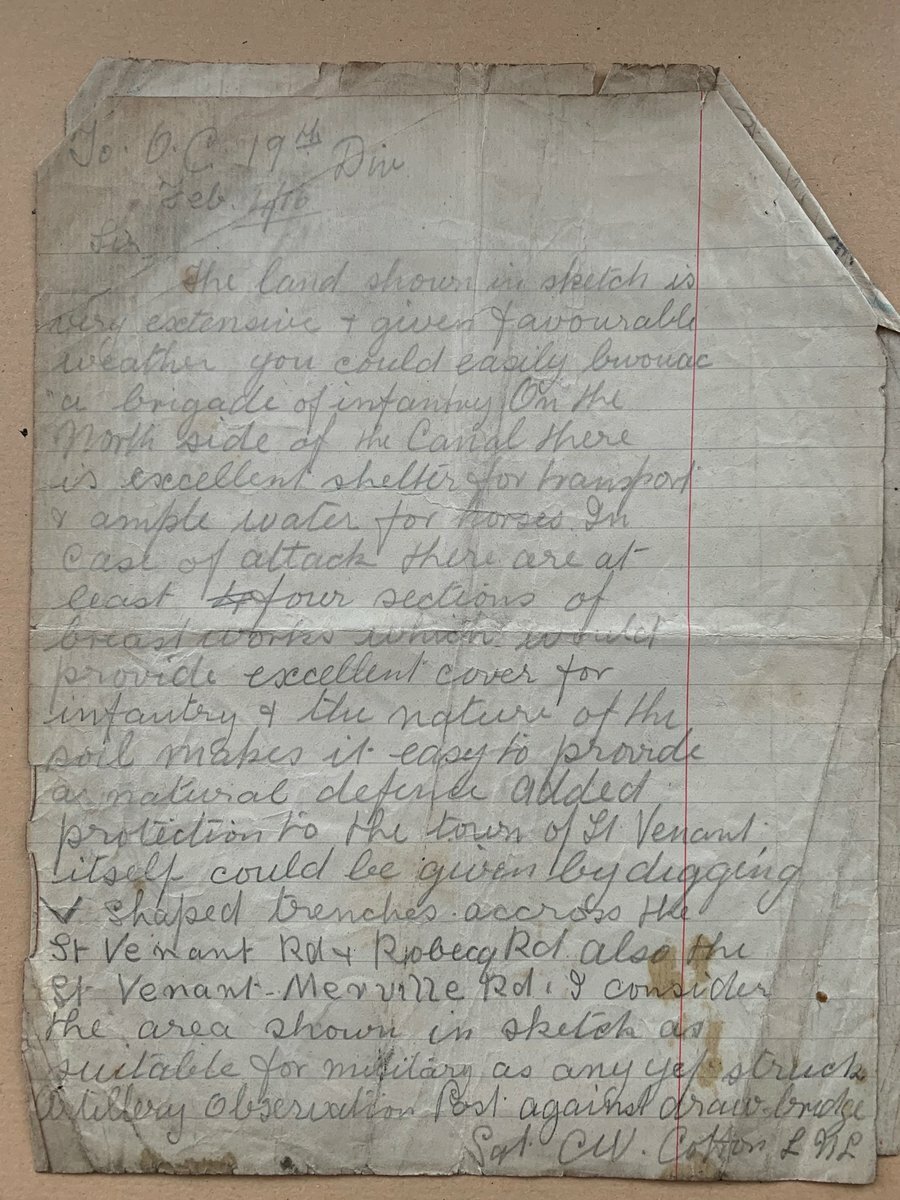 To. O. C. 19th Div
Feb. 4/16
Sir
The land shown in sketch is
very extensive & given favourable
weather you could easily bivouac
a brigade of infantry On the
North side of the Canal there
is excellent shelter for transport
& ample water for horses. In
case of attack there are at
least four sections of
breastworks which would
provide excellent cover for
infantry & the nature of the
soil makes it easy to provide
a natural defence added
protection to the town of St Venant
itself could be given by digging
V shaped trenches accross the
St Venant Rd & Robecq Rd also the
St Venant-Merville Rd. I consider
the area shown in sketch as
suitable for military as any yet struck
Artillery Observation Post against drawbridge
Sgt CW. Cotton L N L